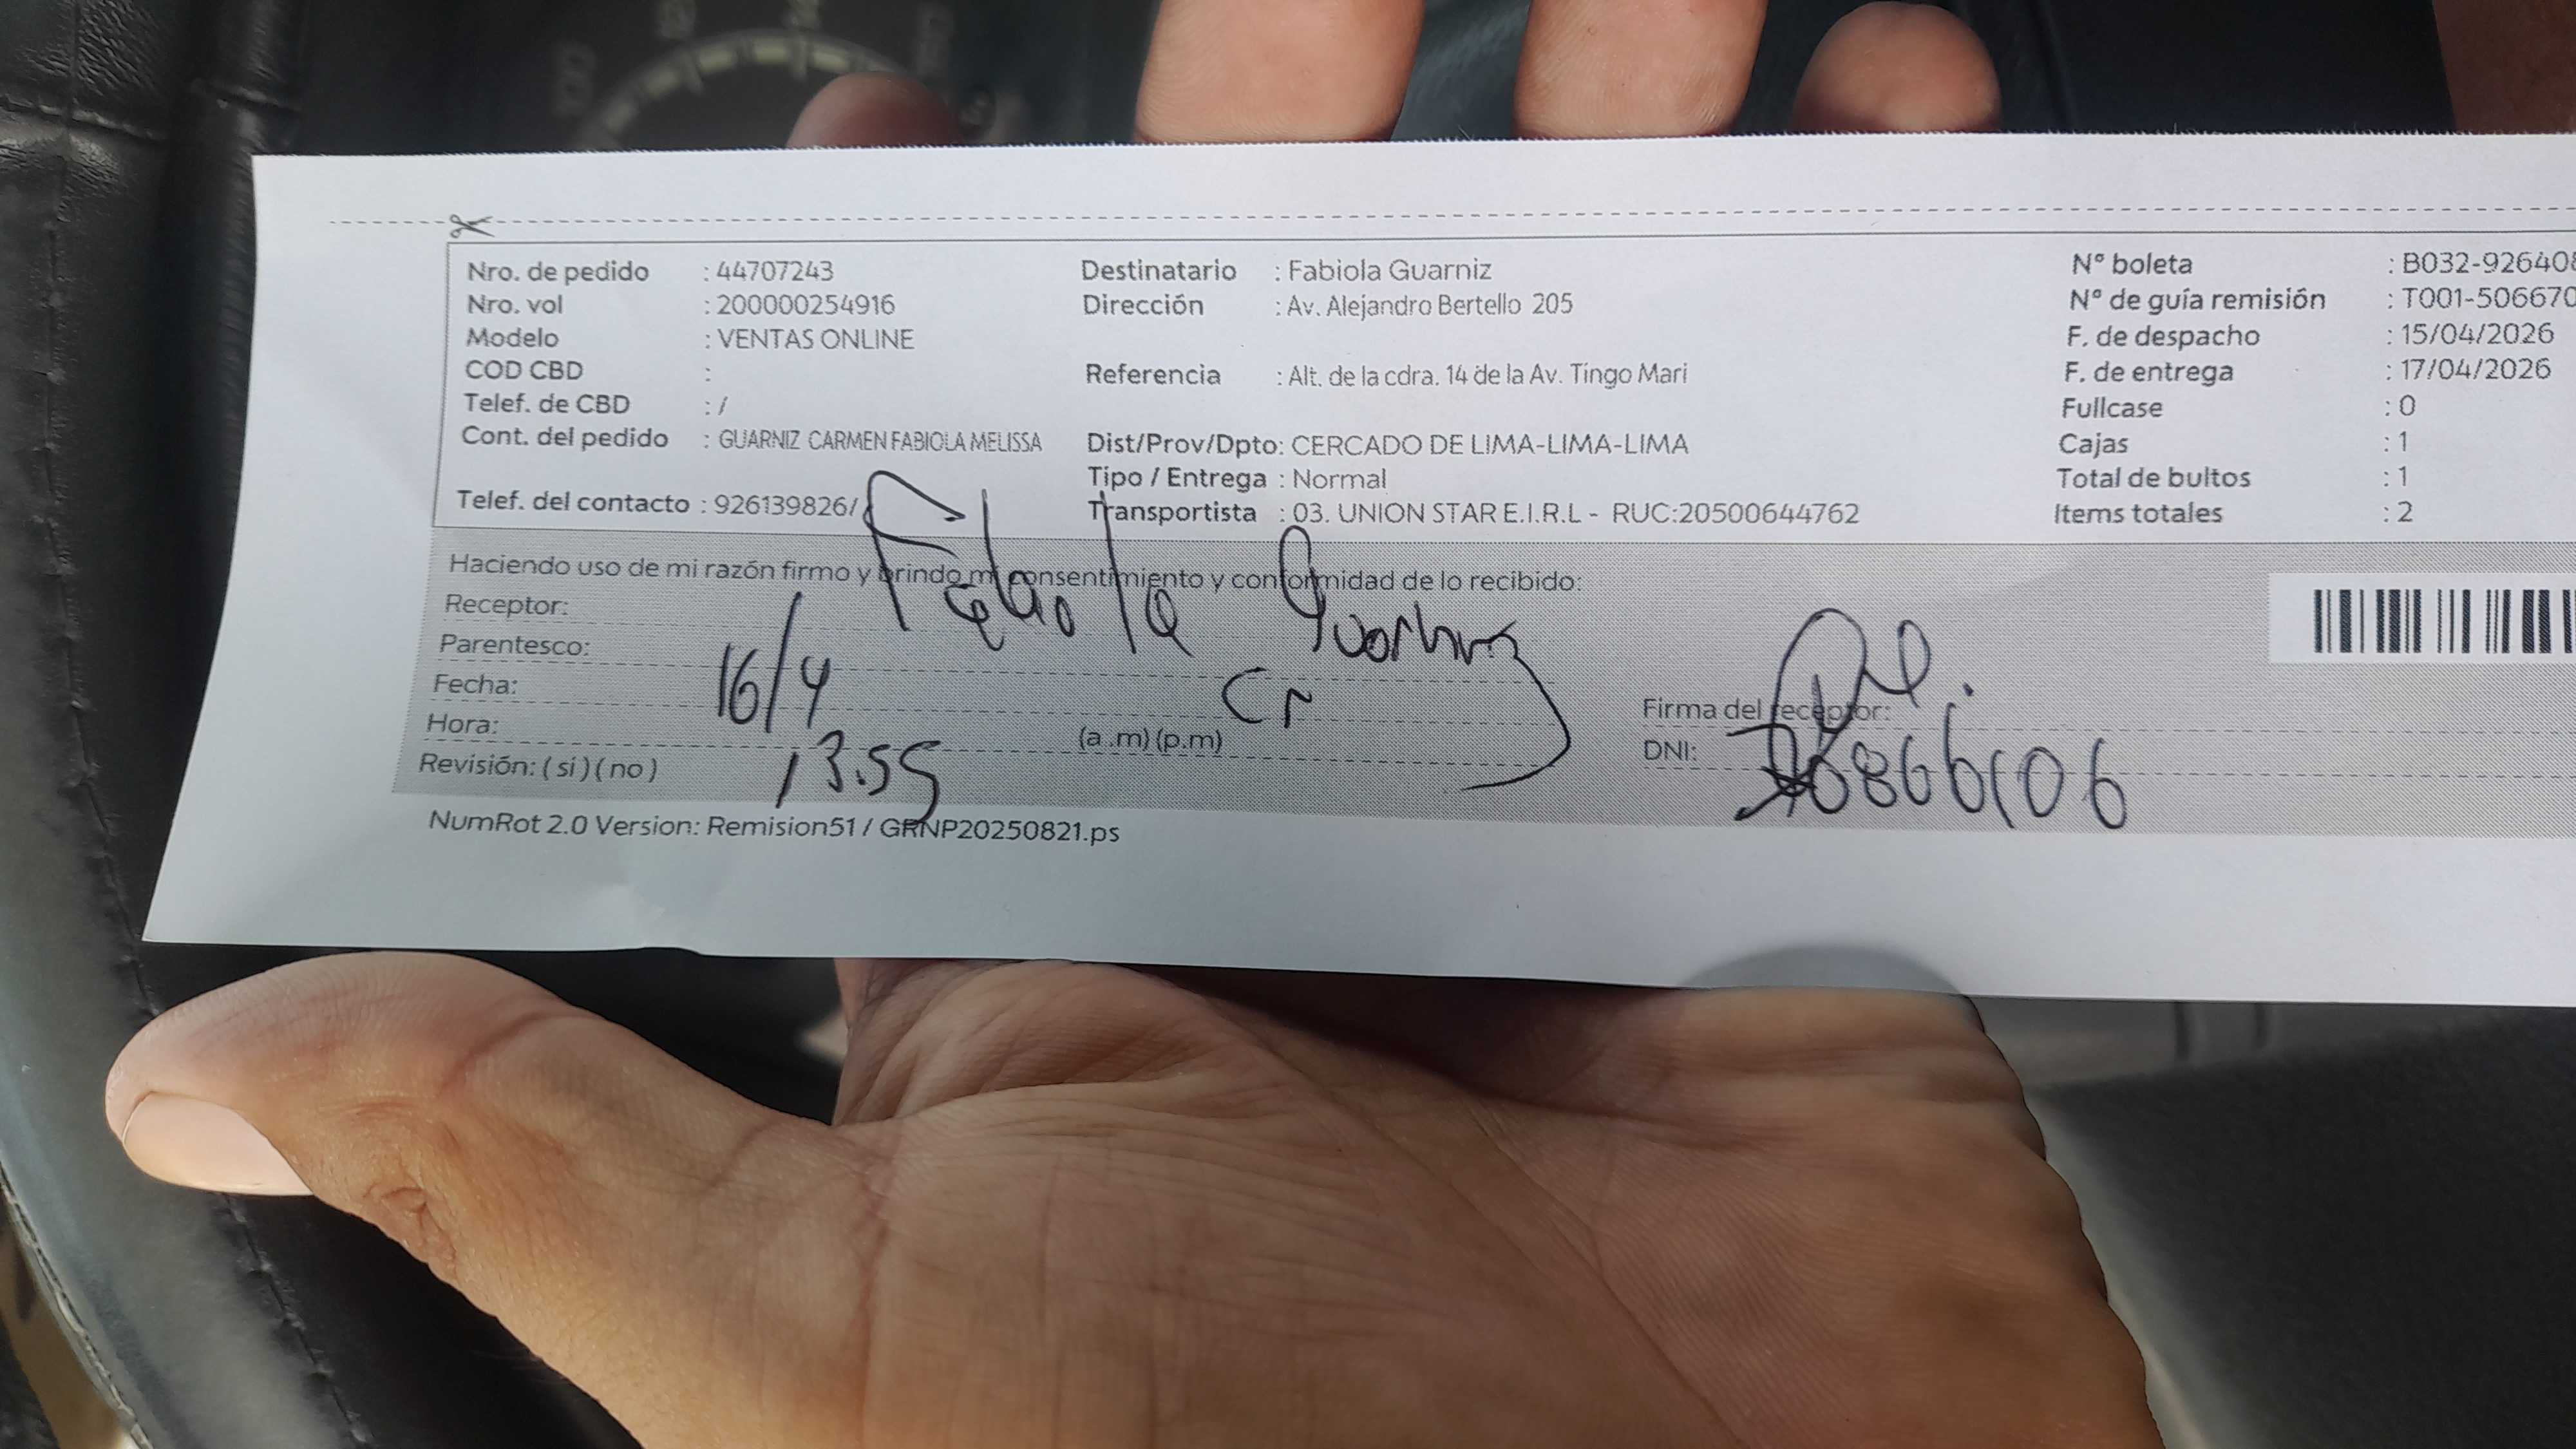 Nro. de pedido : 44707243
Nro. vol : 200000254916
Modelo : VENTAS ONLINE
COD CBD :
Telef. de CBD : /
Cont. del pedido : GUARNIZ CARMEN FABIOLA MELISSA
Telef. del contacto : 926139826/
Destinatario : Fabiola Guarniz
Dirección : Av. Alejandro Bertello 205
Referencia : Alt. de la cdra. 14 de la Av. Tingo Mari
Dist/Prov/Dpto: CERCADO DE LIMA-LIMA-LIMA
Tipo / Entrega : Normal
Transportista : 03. UNION STAR E.I.R.L - RUC:20500644762
Nº boleta : B032-92640
Nº de guía remisión : T001-506670
F. de despacho : 15/04/2026
F. de entrega : 17/04/2026
Fullcase : 0
Cajas : 1
Total de bultos : 1
Items totales : 2
Haciendo uso de mi razón firmo y brindo mi consentimiento y conformidad de lo recibido:
Receptor: Fabiola Guarniz
Parentesco:
Fecha: 16/4
Hora: 13.55 (a.m) (p.m)
Revisión: ( si ) ( no )
Firma del receptor:
DNI:
NumRot 2.0 Version: Remision51 / GRNP20250821.ps